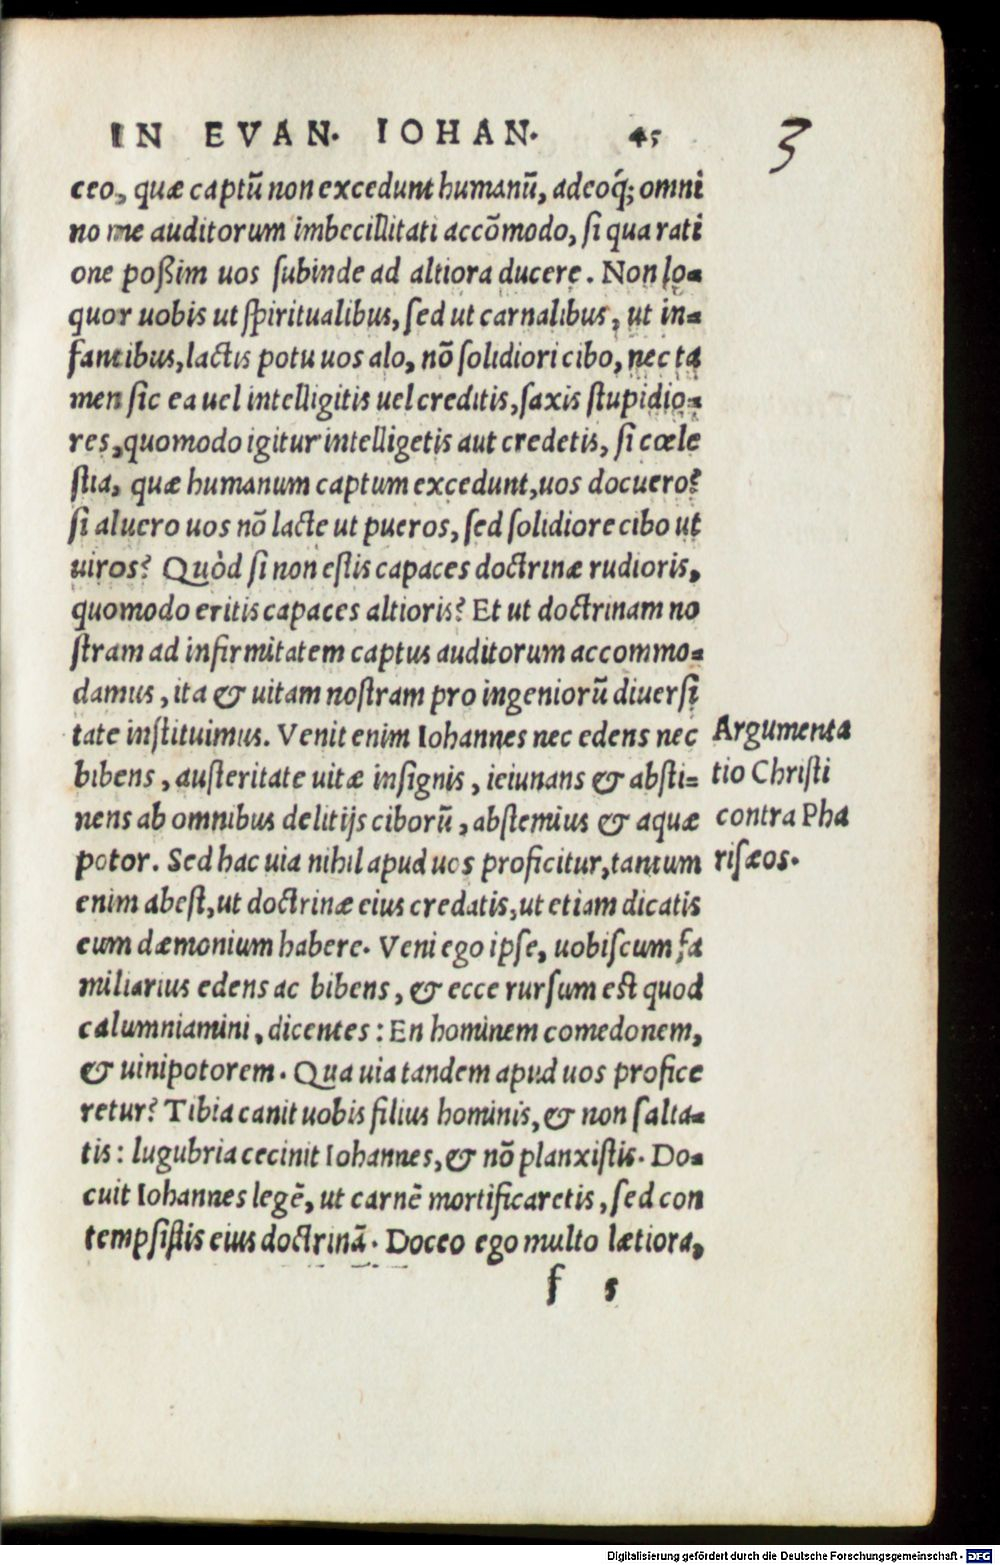 IN EVAN. IOHAN. 45
3
ceo, quæ captũ non excedunt humanũ, adeoq́; omni
no me auditorum imbecillitati accõmodo, ſi qua rati
one poßim uos ſubinde ad altiora ducere. Non lo-
quor uobis ut ſpiritualibus, ſed ut carnalibus, ut in-
fantibus, lactis potu uos alo, nõ ſolidiori cibo, nec ta
men ſic ea uel intelligitis uel creditis, ſaxis ſtupidio-
res, quomodo igitur intelligetis aut credetis, ſi cœle
ſtia, quæ humanum captum excedunt, uos docuero?
ſi aluero uos nõ lacte ut pueros, ſed ſolidiore cibo ut
uiros? Quòd ſi non eſtis capaces doctrinæ rudioris,
quomodo eritis capaces altioris? Et ut doctrinam no
ſtram ad infirmitatem captus auditorum accommo-
damus, ita & uitam noſtram pro ingeniorũ diuerſi
tate inſtituimus. Venit enim Iohannes nec edens nec
bibens, auſteritate uitæ inſignis, ieiunans & abſti-
nens ab omnibus delitijs ciborũ, abſtemius & aquæ
potor. Sed hac uia nihil apud uos proficitur, tantum
enim abeſt, ut doctrinæ eius credatis, ut etiam dicatis
eum dæmonium habere. Veni ego ipſe, uobiſcum fa
miliarius edens ac bibens, & ecce rurſum eſt quod
calumniamini, dicentes: En hominem comedonem,
& uinipotorem. Qua uia tandem apud uos profice
retur? Tibia canit uobis filius hominis, & non ſalta-
tis: lugubria cecinit Iohannes, & nõ planxiſtis. Do-
cuit Iohannes legẽ, ut carnẽ mortificaretis, ſed con
tempſiſtis eius doctrinã. Doceo ego multo lætiora,
Argumenta
tio Chriſti
contra Pha
riſæos.
f 5
Digitalisierung gefördert durch die Deutsche Forschungsgemeinschaft - DFG